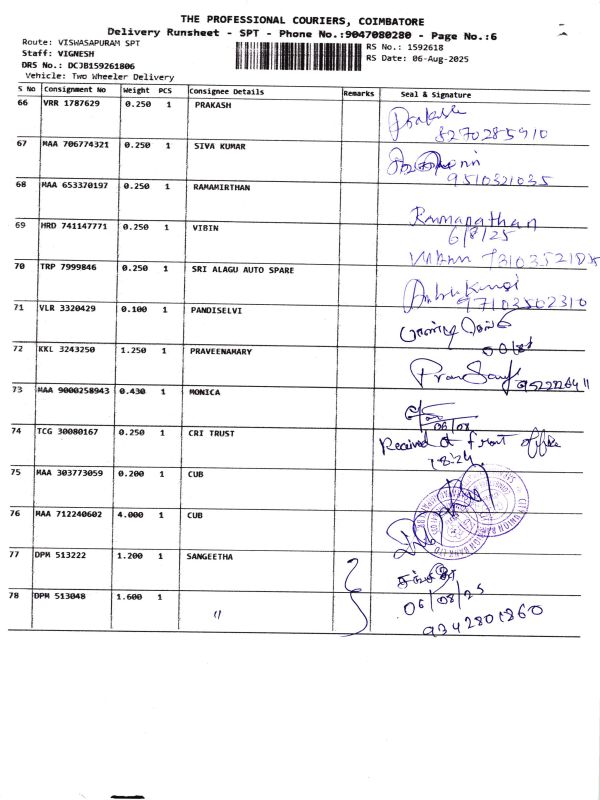 THE PROFESSIONAL COURIERS, COIMBATORE
Delivery Runsheet - SPT - Phone No.:9047080280 - Page No.:6
Route: VISWASAPURAM SPT
RS No.: 1592618
Staff: VIGNESH
RS Date: 06-Aug-2025
DRS No.: DCJB159261806
Vehicle: Two Wheeler Delivery
S No Consignment No Weight PCS Consignee Details Remarks Seal & Signature
66 VRR 1787629 0.250 1 PRAKASH
Prakash
8270285910
67 MAA 706774321 0.250 1 SIVA KUMAR
9510321035
68 MAA 653370197 0.250 1 RAMAMIRTHAN
Ramanathan
6/8/25
69 HRD 741147771 0.250 1 VIBIN
70 TRP 7999846 0.250 1 SRI ALAGU AUTO SPARE
97103502310
71 VLR 3320429 0.100 1 PANDISELVI
72 KKL 3243250 1.250 1 PRAVEENAMARY
73 MAA 9000258943 0.430 1 MONICA
06/08
74 TCG 30080167 0.250 1 CRI TRUST
Received at front office
18:24
75 MAA 303773059 0.200 1 CUB
76 MAA 712240602 4.000 1 CUB
77 DPM 513222 1.200 1 SANGEETHA
78 DPM 513048 1.600 1 "
06/08/25
9342801860